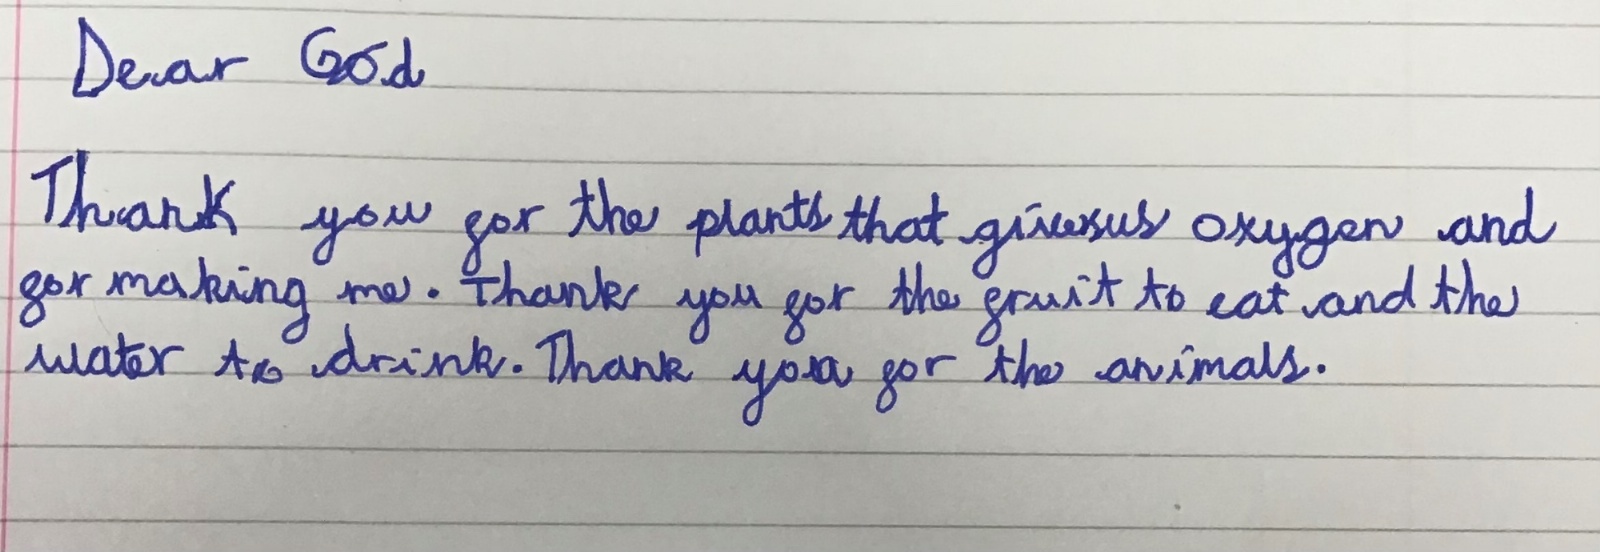 Dear God
Thank you for the plants that givesus oxygen and
for making me. Thank you for the fruit to eat and the
water to drink. Thank you for the animals.